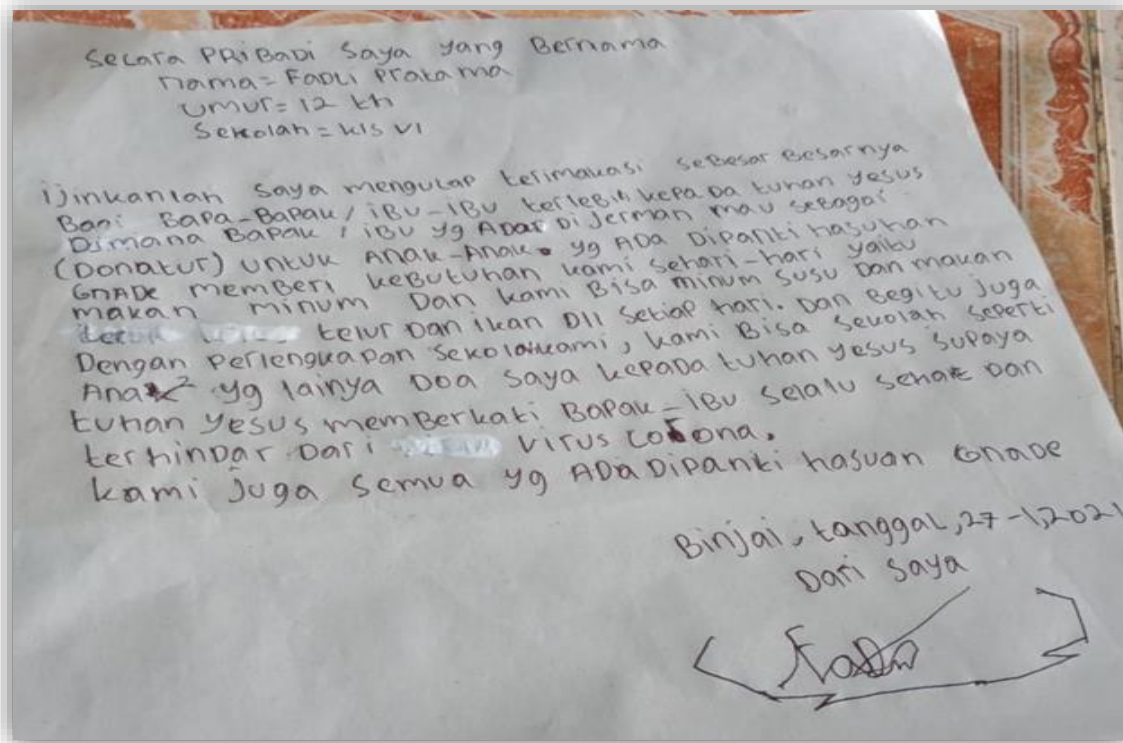 Secara PRiBaDi Saya yang Bernama
nama = FaDLi Pratama
umur = 12 th
Sekolah = kls VI
ijinkanlah saya mengucap terimakasi seBesar Besarnya
Bagi BaPa-BaPak / iBu-iBu terleBih kepaDa tuhan yesus
Dimana BaPak / iBu yg ADa Di Jerman mau seBagai
(Donatur) untuk Anak-Anak yg ADa DiPanti hasuhan
GnADe memBeri keButuhan kami sehari-hari yaitu
makan minum Dan kami Bisa minum susu Dan makan
telur Dan ikan Dll setiap hari. Dan Begitu juga
Dengan Perlengkapan sekolahkami, kami Bisa sekolah seperti
Anak² yg lainya Doa saya kepaDa tuhan yesus suPaya
tuhan yesus memBerkati BaPak-iBu selalu sehat Dan
terhinDar Dari virus Corona.
kami juga semua yg ADa DiPanti hasuan GnaDe
Binjai, tanggal, 27-1,2021
Dari saya